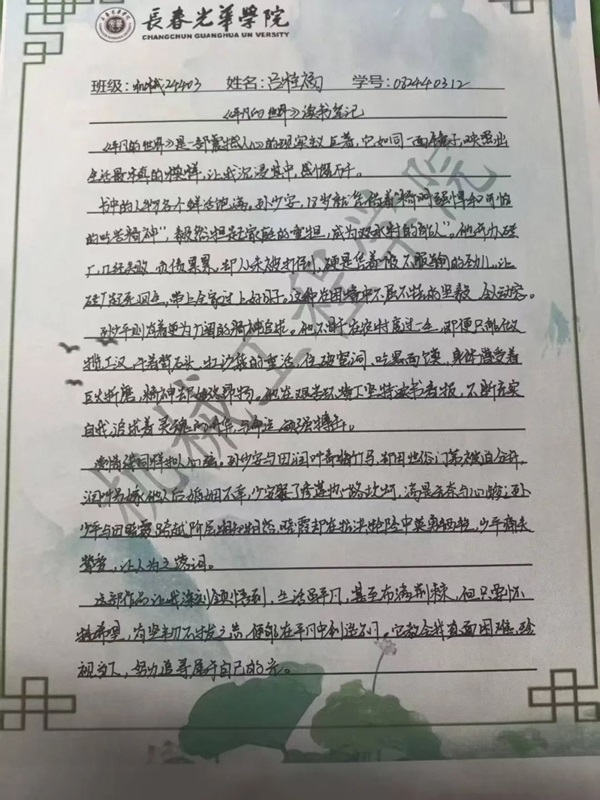 長春光華學院
CHANGCHUN GUANGHUA UNIVERSITY
班级: 机械24403 姓名: 吕桂 学号: 082440312
《平凡的世界》读书笔记
《平凡的世界》是一部震撼人心的现实主义巨著，它如同一面镜子，映照出
生活最本真的模样，让我沉浸其中，感慨万千。
书中的人物各个鲜活饱满。孙少安，13岁就凭借着精明强悍和可怕
的吃苦精神"，毅然担起家庭的重担，成为双水村的"能人"。他开办砖
厂，几经失败，负债累累，却从未被打倒，硬是凭着股不服输的劲儿，让
砖厂起死回生，带上全家过上好日子。这种在困境中不屈不挠的坚毅，令人动容。
孙少平则有着更为广阔的精神追求。他不甘于在农村度过一生，即便只能做
揽工汉，干着背石头、扛沙袋的重活，住破窑洞，吃黑面馍，身体遭受着
巨大折磨，精神却始终昂扬。他在艰苦环境下坚持读书看报，不断充实
自我，追求着灵魂的升华，与命运顽强搏斗。
爱情线同样扣人心弦。孙少安与田润叶青梅竹马，却因世俗门第被迫分开，
润叶另嫁他人后婚姻不幸，少安娶了秀莲，满是无奈与心酸；孙
少平与田晓霞跨越阶层相知相恋，晓霞却在抗洪抢险中英勇牺牲，少平痛失
挚爱，让人为之
这部作品让我深刻领悟到，生活虽平凡，甚至布满荆棘，但只要怀
揣希望，有坚韧不拔之志，便能在平凡中创造不凡。它教会我直面困难，珍
视亲人，努力追寻属于自己的光。
机械工程学院